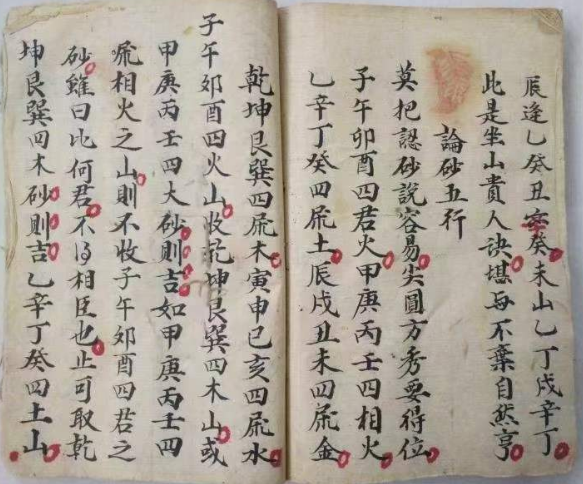 辰逢乙癸丑寅癸未山乙丁戌辛丁
此是坐山貴人訣堪与不棄自然亨
論砂五行
莫把認砂說容易尖圓方秀要得位
子午卯酉四君火甲庚丙壬四相火
乙辛丁癸四属土辰戌丑未四属金
乾坤艮巽四属木寅申巳亥四属水
子午卯酉四火山收乾坤艮巽四木山或
甲庚丙壬四大砂則吉如甲庚丙壬四
属相火之山則不收子午卯酉四君之
砂雖曰比何君不得相臣也止可取乾
坤艮巽四木砂則吉乙辛丁癸四土山